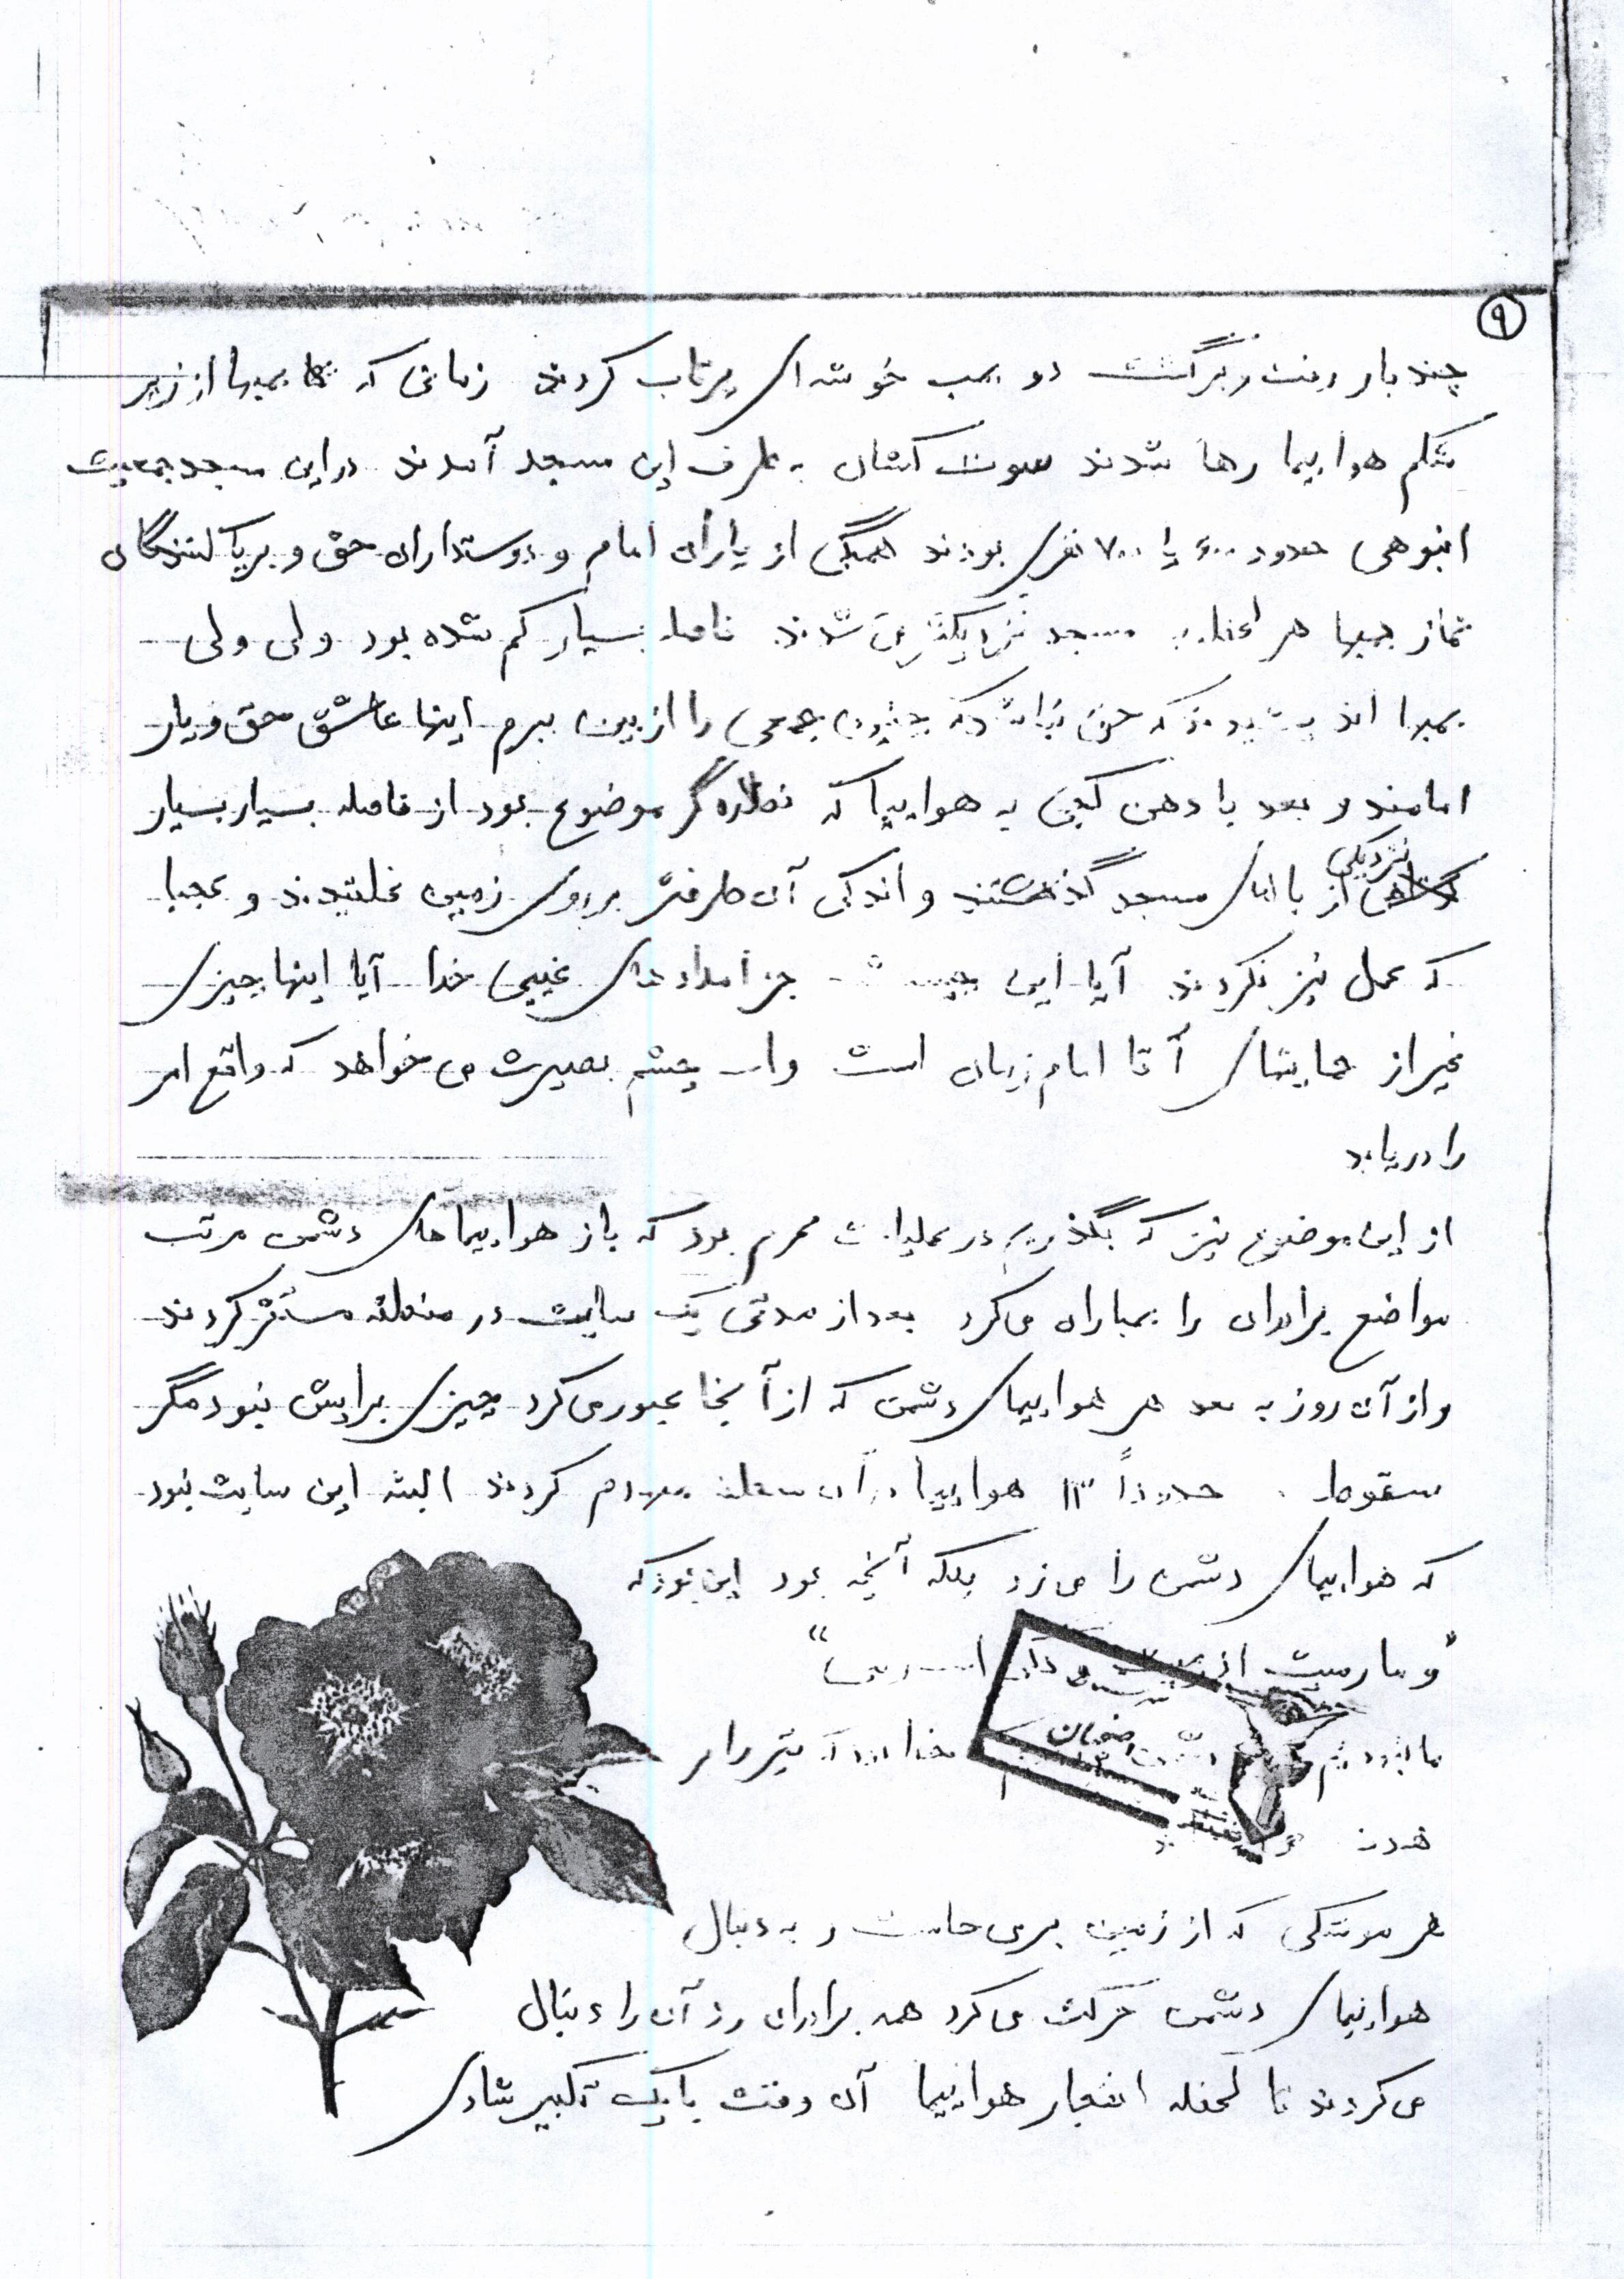 ۹
چند بار رفت و برگشت دو بمب خوشه ای پرتاب کردند زمانی که بمبها از زیر
شکم هواپیما رها شدند سوت کشان به طرف این مسجد آمدند در این مسجد جمعیت
انبوهی حدود ۶۰۰ یا ۷۰۰ نفری بودند همگی از یاران امام و دوستداران حق و برپا کنندگان
نماز بمبها هر لحظه به مسجد نزدیکتر می شدند فاصله بسیار کم شده بود ولی ولی
بمبها اندیشیدند که جمعی را از بین ببرم اینها عاشق حق و یار
امامند و بعد با دهن کجی به هواپیما که نظاره گر موضوع بود از فاصله بسیار بسیار
نزدیکی از بالای مسجد گذشتند و اندکی آن طرفتر بر روی زمین غلتیدند و عجبا
که عمل نیز نکردند آیا این چیست جز امدادهای غیبی خدا آیا اینها چیزی
غیر از حمایتهای آقا امام زمان است ولی چشم بصیرت می خواهد که واقع امر
را دریابد
از این موضوع نیز که بگذریم در عملیات محرم بود که باز هواپیماهای دشمن مرتب
مواضع برادران را بمباران می کرد بعد از مدتی یک سایت در منطقه مستقر کردند
و از آن روز به بعد هر هواپیمای دشمن که از آنجا عبور می کرد چیزی برایش نبود مگر
سقوط . حدوداً ۱۳ هواپیما در آن منطقه منهدم کردند البته این سایت نبود
که هواپیمای دشمن را می زد بلکه آنچه بود این بود که
"و ما رمیت اذ رمیت و لکن الله رمی"
ما نبودیم خدا بود که تیر را بر
هدف
هر موشکی که از زمین بر می خاست و به دنبال
هواپیمای دشمن حرکت می کرد همه برادران رد آن را دنبال
می کردند تا لحظه انفجار هواپیما آن وقت با یک تکبیر شادی